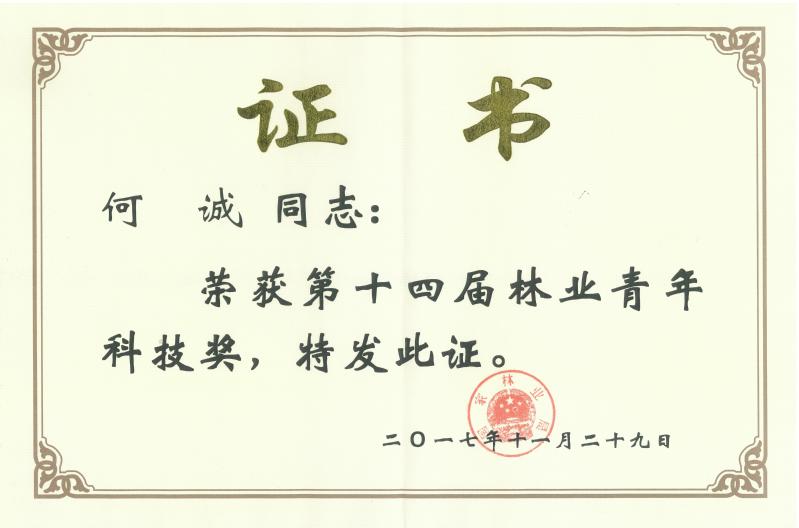 证 书
何 诚 同志：
荣获第十四届林业青年
科技奖，特发此证。
国家林业局
二〇一七年十一月二十九日